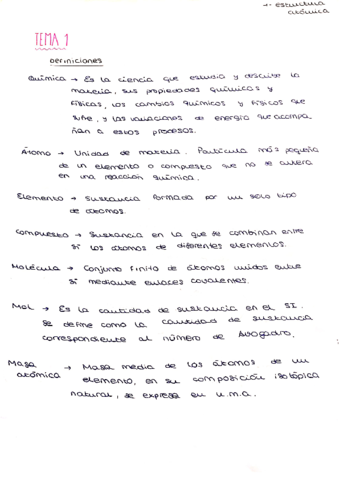 → estructura
atómica
TEMA 1
Definiciones
Química → Es la ciencia que estudia y describe la
materia, sus propiedades químicas y
físicas, los cambios químicos y físicos que
sufre, y las variaciones de energía que acompa
ñan a estos procesos.
Átomo → Unidad de materia. Partícula más pequeña
de un elemento o compuesto que no se altera
en una reacción química.
Elemento → Sustancia formada por un solo tipo
de átomos.
Compuesto → Sustancia en la que se combinan entre
sí los átomos de diferentes elementos.
Molécula → Conjunto finito de átomos unidos entre
sí mediante enlaces covalentes.
Mol → Es la cantidad de sustancia en el SI.
Se define como la cantidad de sustancia
correspondiente al número de Avogadro.
Masa → Masa media de los átomos de un
atómica elemento, en su composición isotópica
natural, se expresa en u.m.a.